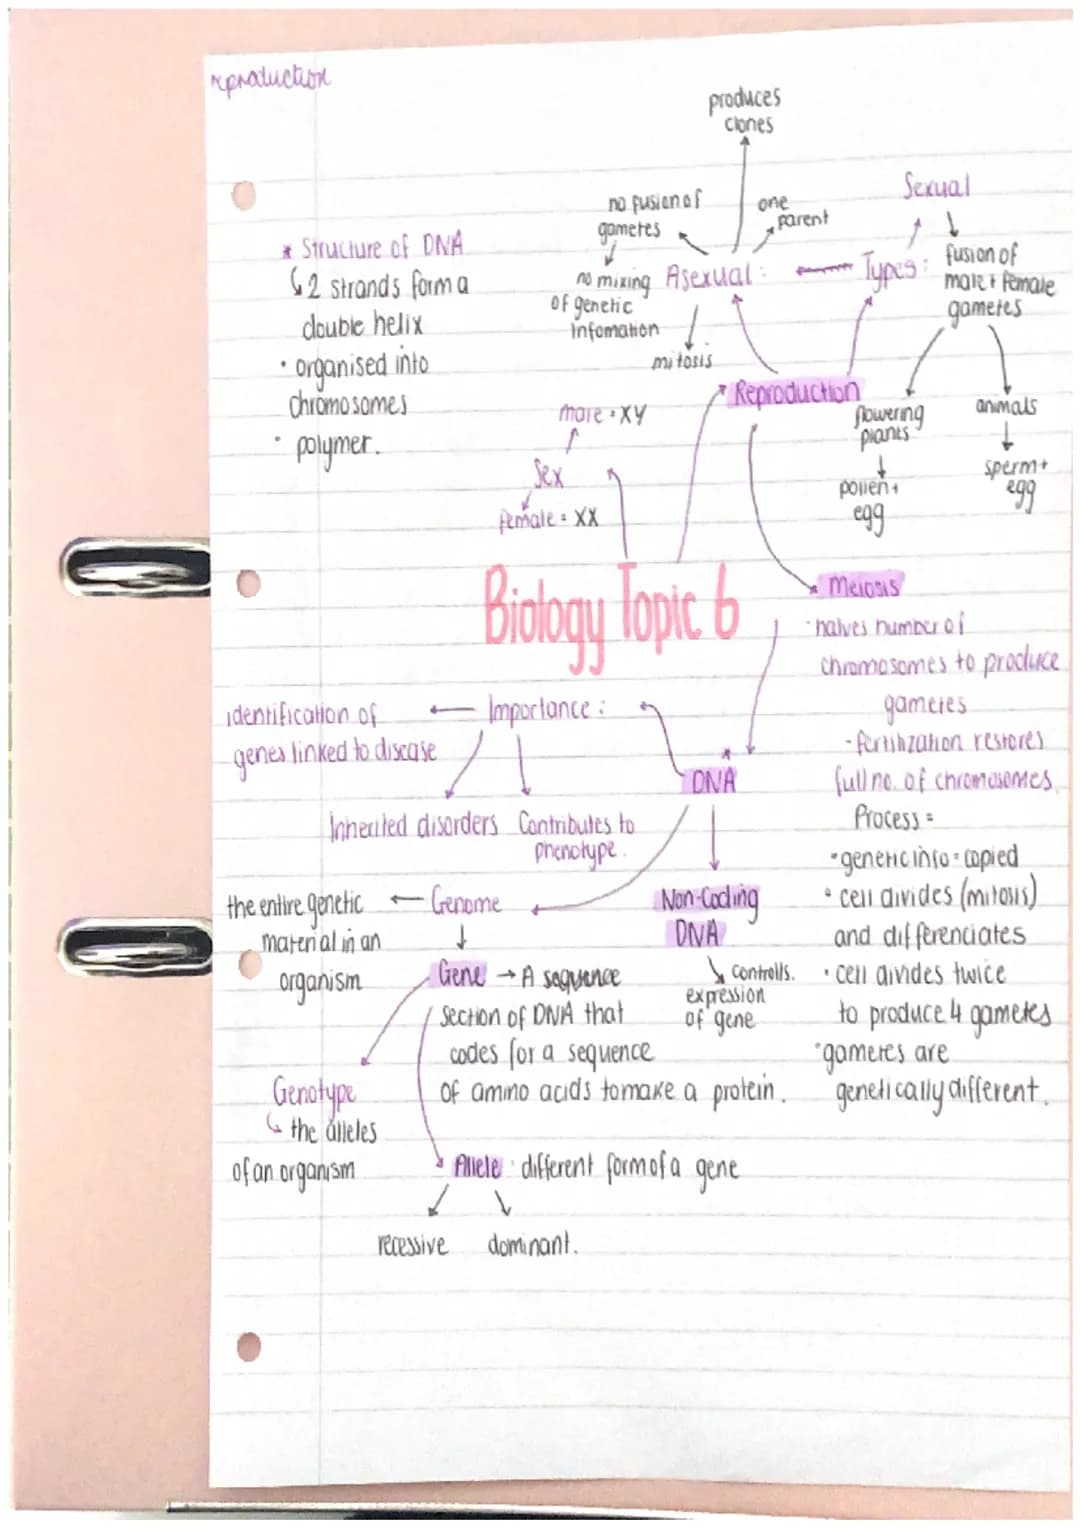 reproduction
produces
clones
Sexual
no fusion of
gametes
one
parent
* Structure of DNA
↳ 2 strands form a
double helix
· organised into
chromosomes
· polymer.
no mixing
of genetic
Infomation
Asexual :
mitosis
Types :
fusion of
male + female
gametes
Reproduction
flowering
plants
pollen +
egg
animals
sperm +
egg
male = XY
Sex
female = XX
Biology Topic 6
Meiosis
· halves number of
chromosomes to produce
gametes
- fertilization restores
full no. of chromosomes.
Process =
· genetic info = copied
· cell divides (mitosis)
and differenciates
· cell divides twice
to produce 4 gametes
· gametes are
genetically different.
Importance :
identification of
genes linked to disease
Inherited disorders
Contributes to
phenotype.
DNA
Non-Coding
DNA
controlls.
expression
of gene
Genome
the entire genetic
material in an
organism
Gene → A sequence
section of DNA that
codes for a sequence
of amino acids to make a protein.
Genotype
↳ the alleles
of an organism
Allele : different form of a gene
recessive
dominant.